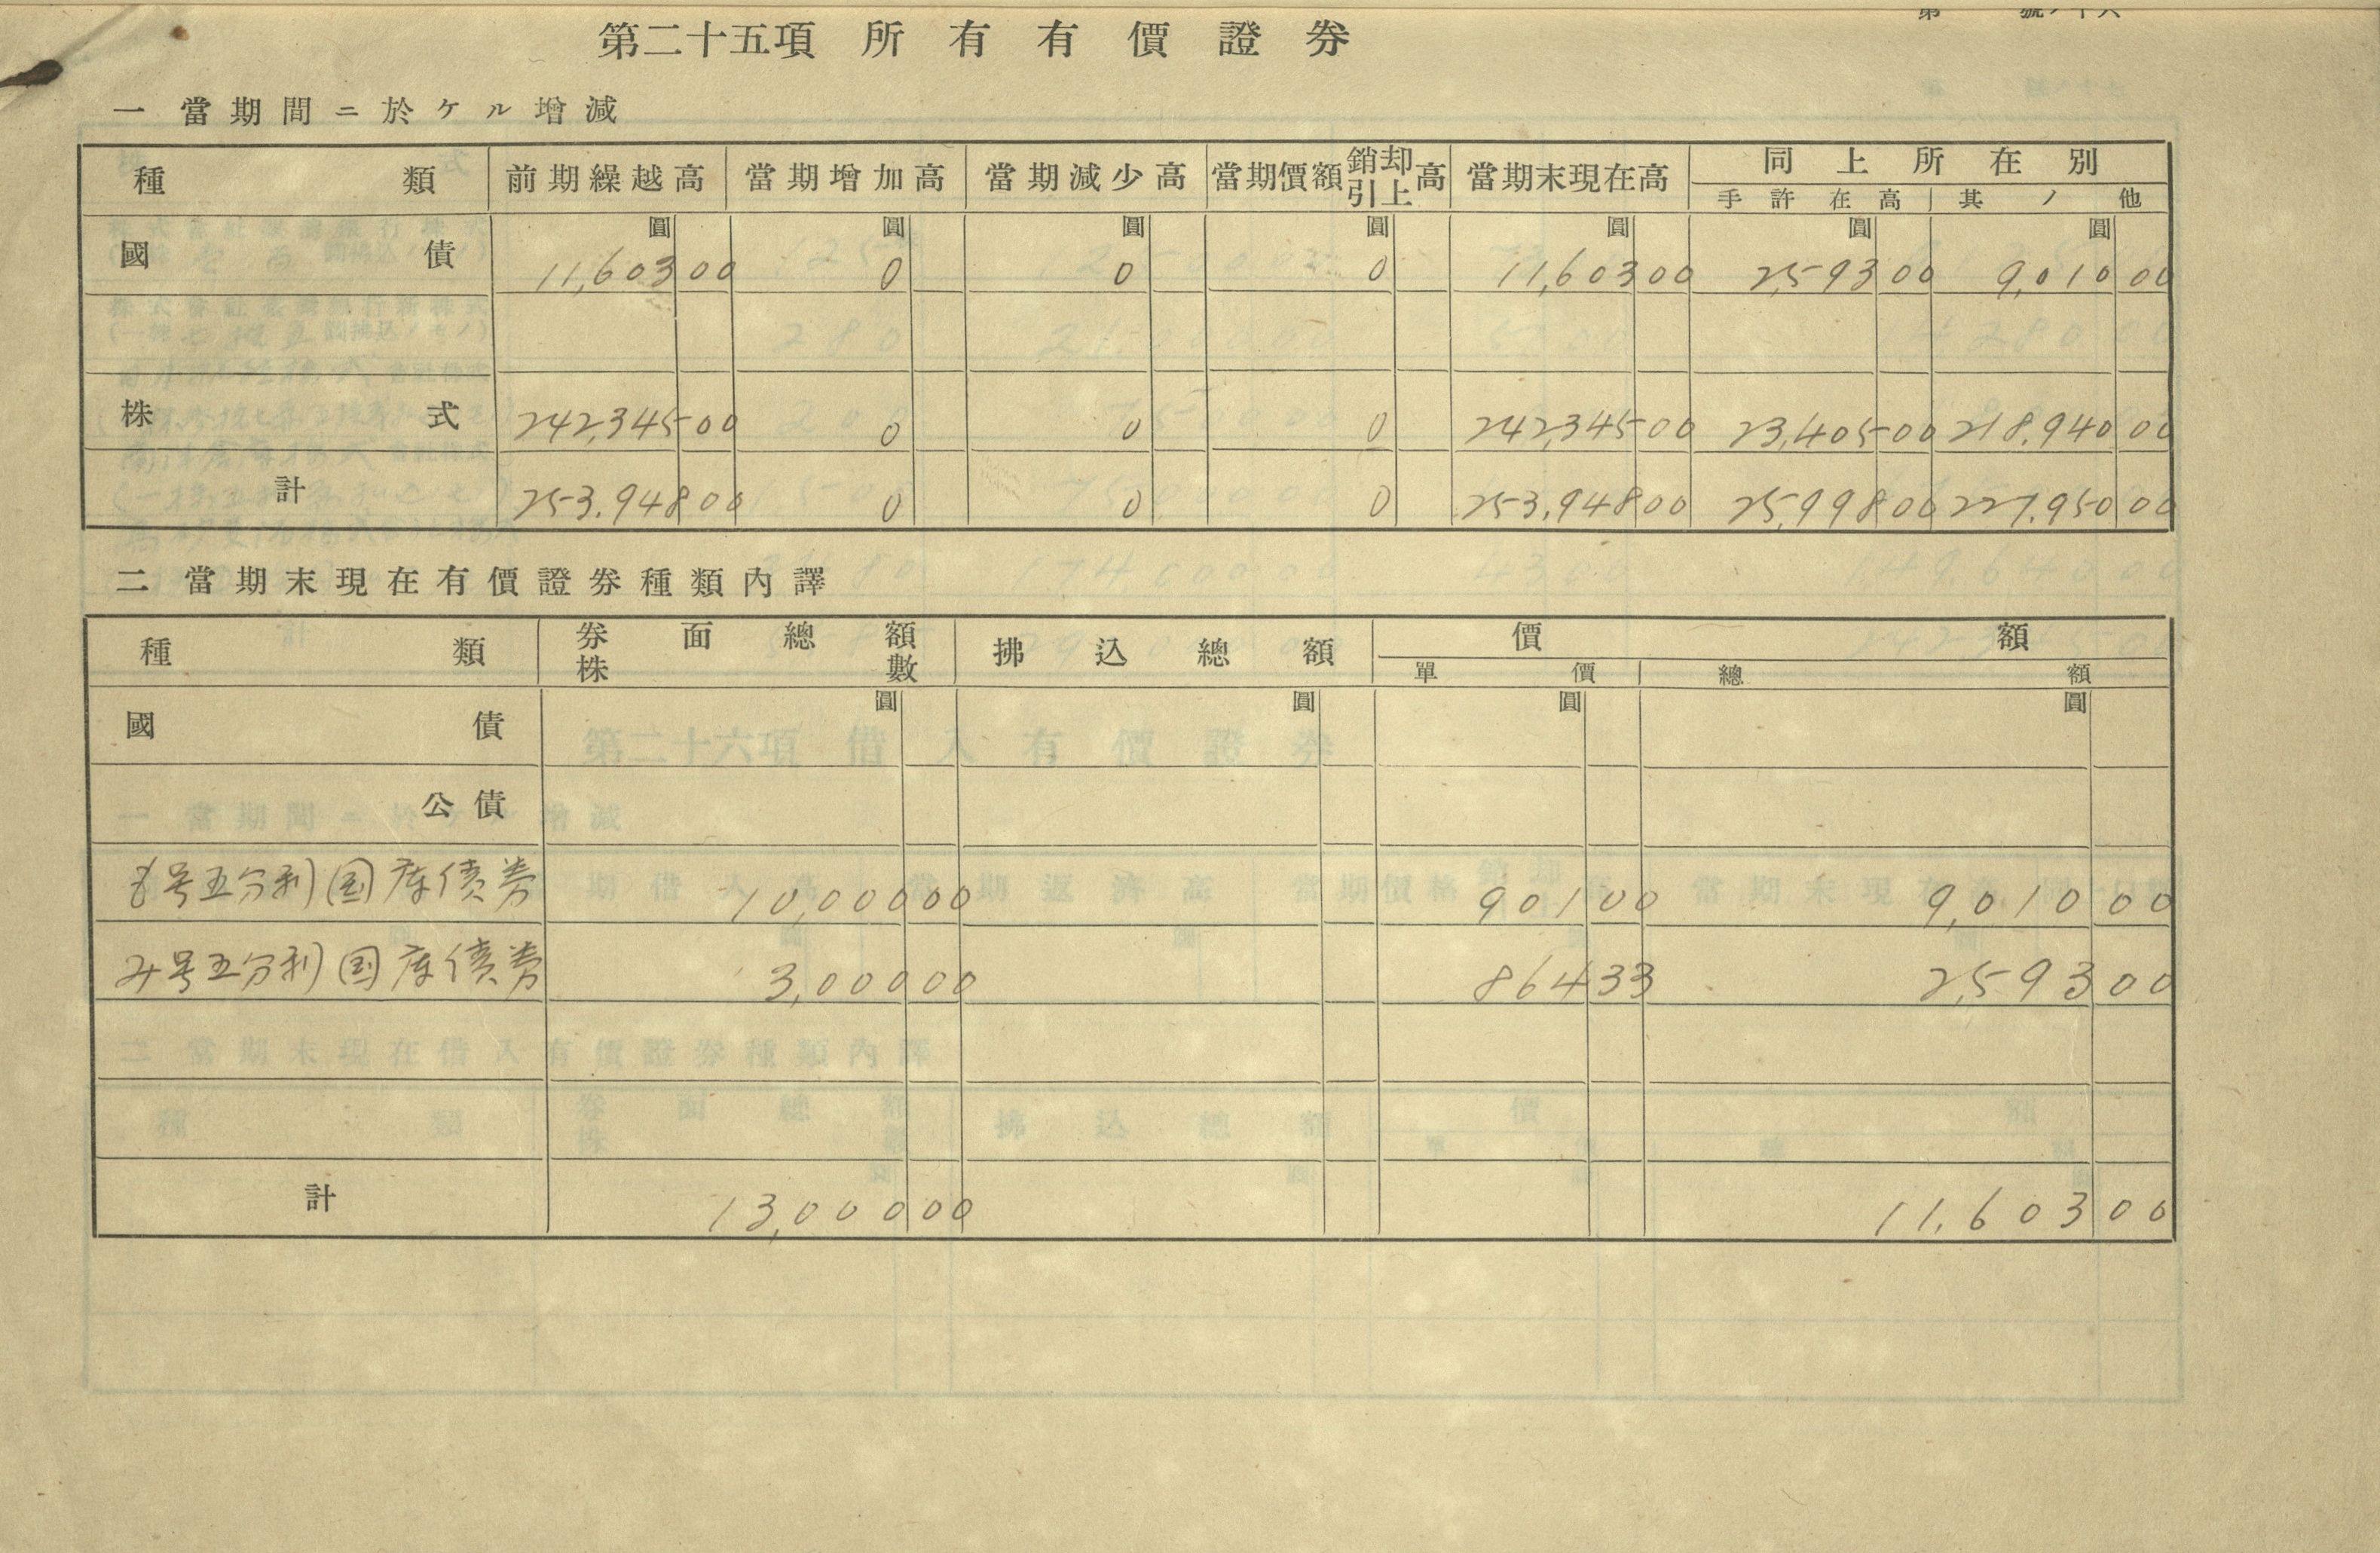 第二十五項 所有有價證券
一 當期間ニ於ケル增減
種類 前期繰越高 當期增加高 當期減少高 當期價額銷却引上高 當期末現在高 同上所在別
手許在高 其ノ他
圓 圓 圓 圓 圓 圓 圓
國債 11,603 00 0 0 0 11,603 00 2,593 00 9,010 00
株式 242,345 00 0 0 0 242,345 00 23,405 00 218,940 00
計 253,948 00 0 0 0 253,948 00 25,998 00 227,950 00
二 當期末現在有價證券種類內譯
種類 券面總額 株數 拂込總額 價額
單價 總額
圓 圓 圓 圓
國債
公債
号五分利国庫債券 10,000 00 901 00 9,010 00
み号五分利国庫債券 3,000 00 864 33 2,593 00
計 13,000 00 11,603 00